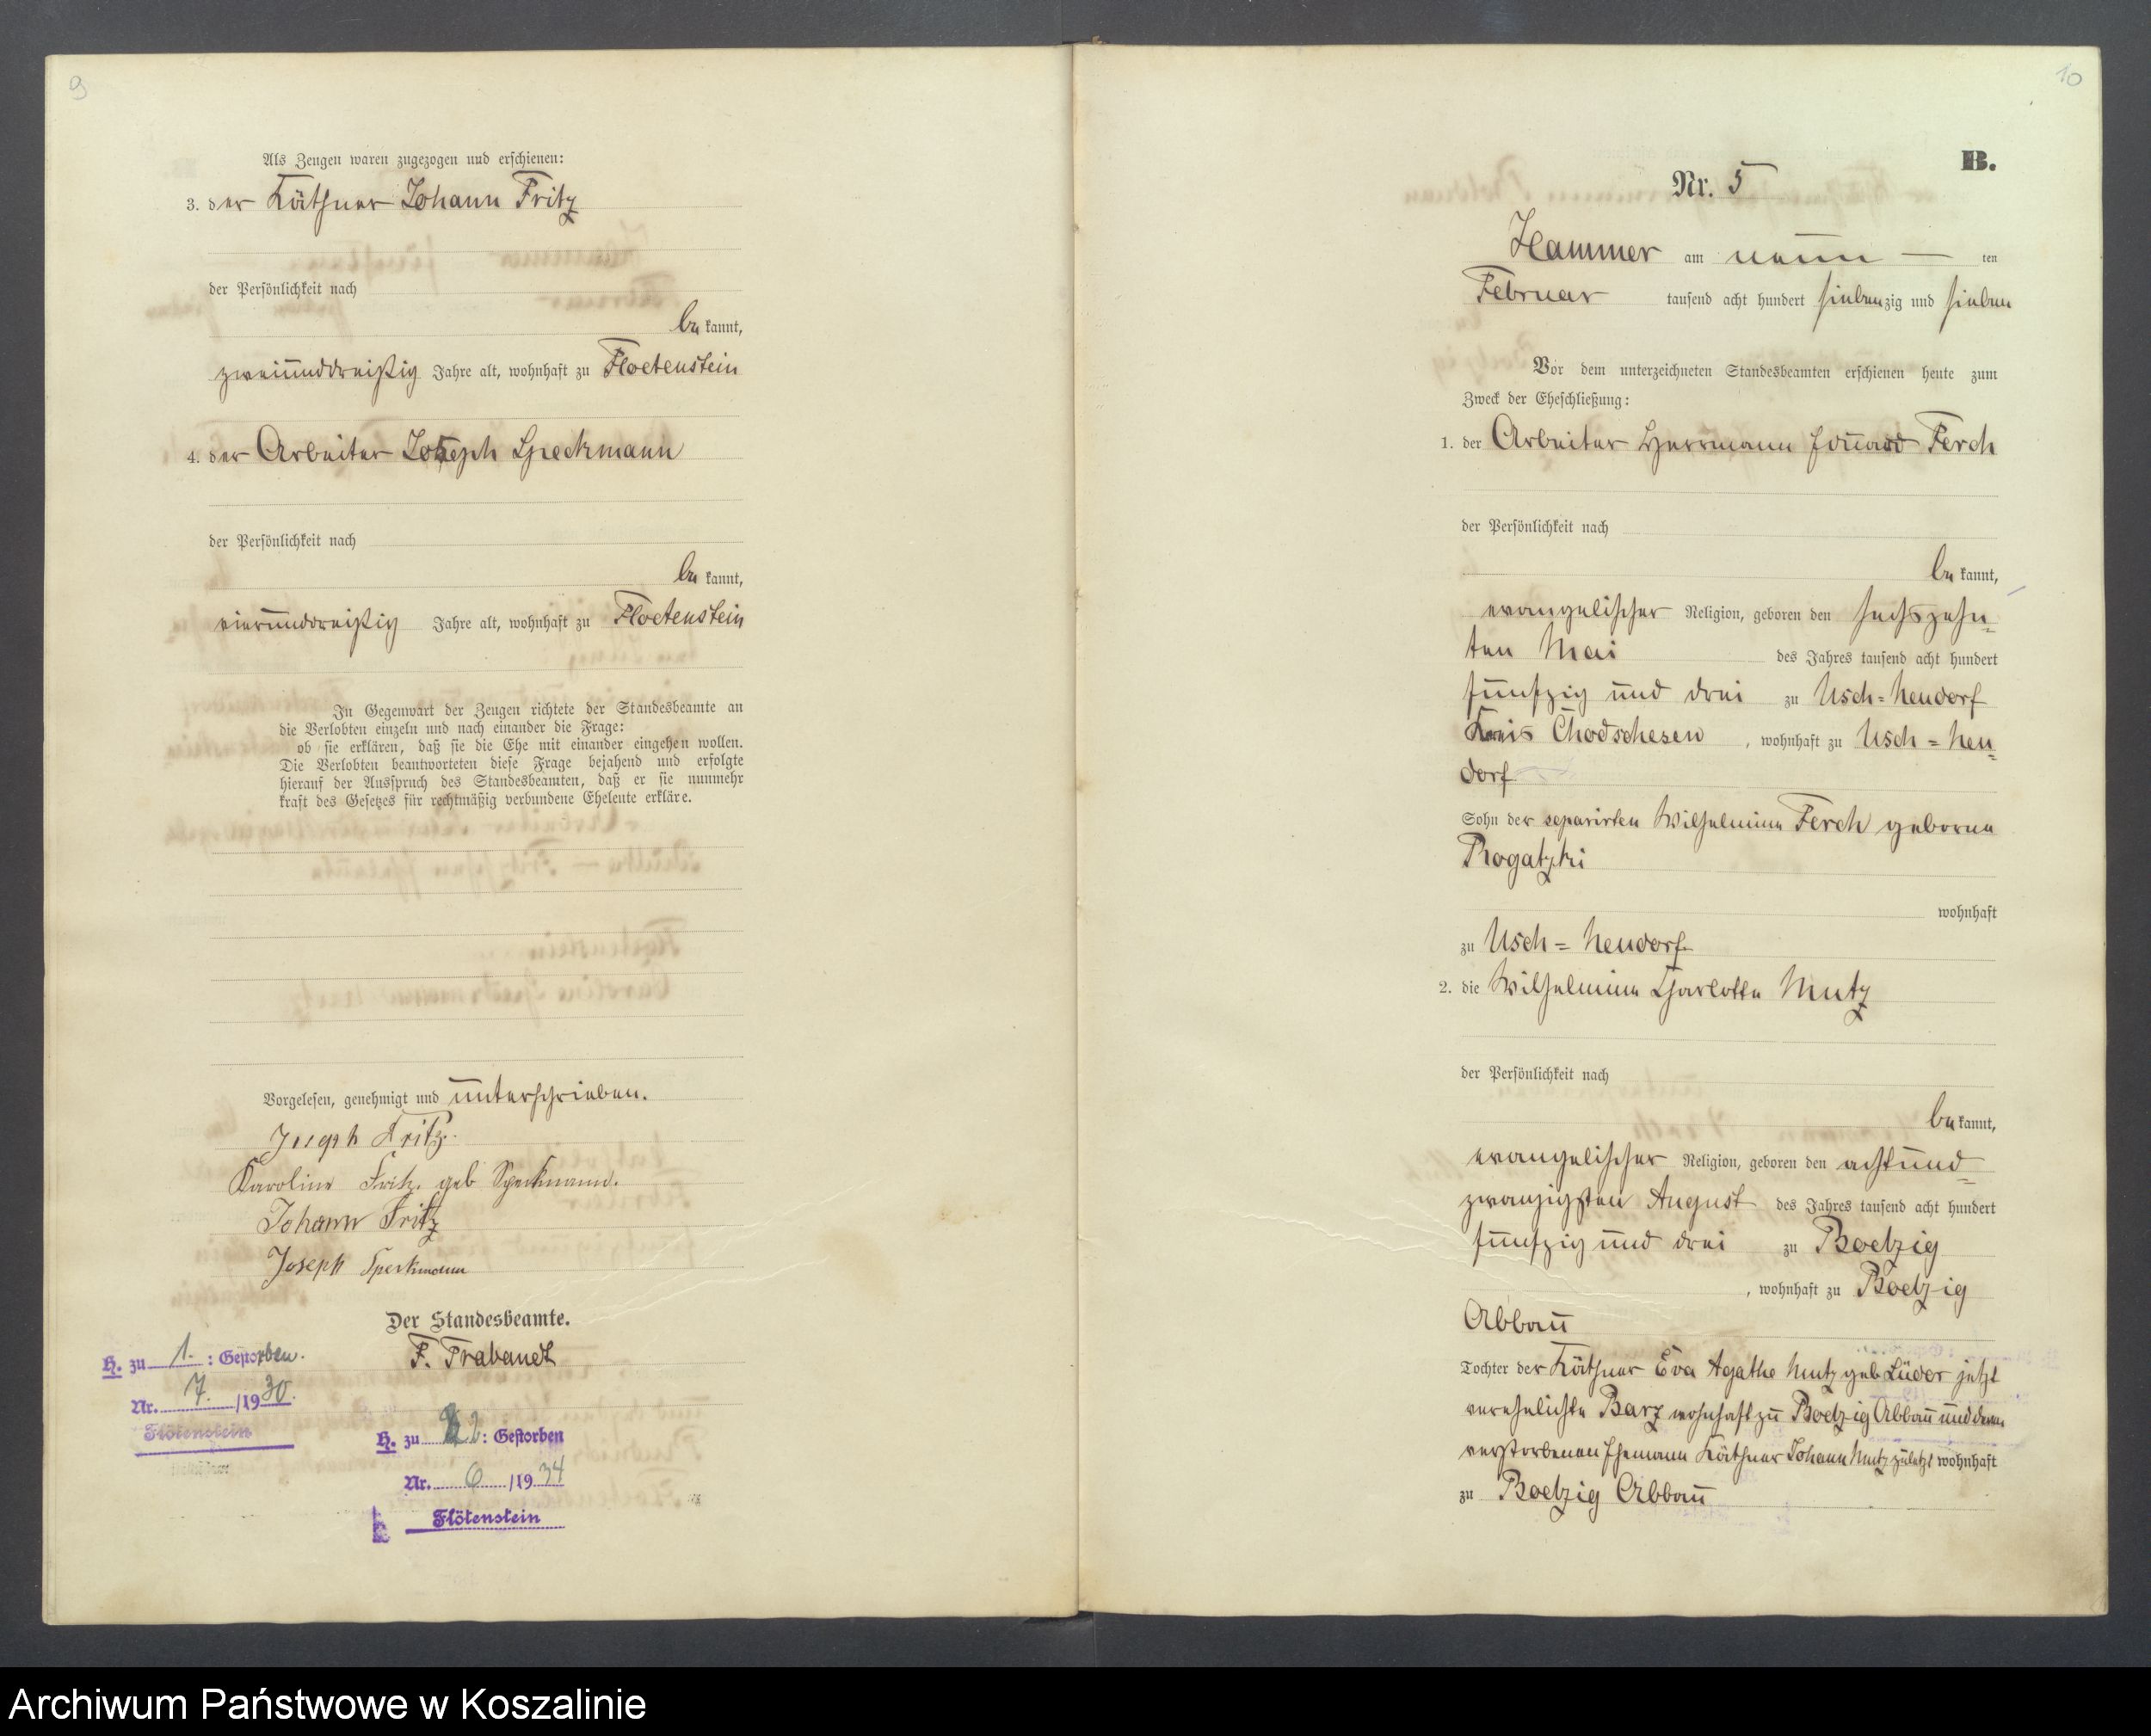 9
Als Zeugen waren zugezogen und erschienen:
3. der Käthner Johann Fritz
der Persönlichkeit nach
bekannt,
zweiunddreißig Jahre alt, wohnhaft zu Floetenstein
4. der Arbeiter Joseph Speckmann
der Persönlichkeit nach
bekannt,
vierunddreißig Jahre alt, wohnhaft zu Floetenstein
In Gegenwart der Zeugen richtete der Standesbeamte an
die Verlobten einzeln und nach einander die Frage:
ob sie erklären, daß sie die Ehe mit einander eingehen wollen.
Die Verlobten beantworteten diese Frage bejahend und erfolgte
hierauf der Ausspruch des Standesbeamten, daß er sie nunmehr
kraft des Gesetzes für rechtmäßig verbundene Eheleute erkläre.
Vorgelesen, genehmigt und unterschrieben.
Joseph Fritz.
Karoline Fritz. geb Speckmann.
Johann Fritz
Joseph Speckmann
Der Standesbeamte.
F. Trabandt
H. zu 1. : Gestorben.
Nr. 7. /1930.
Flötenstein
H. zu 2 : Gestorben
Nr. 6 /1934
Flötenstein
10
B.
Nr. 5
Hammer am neun — ten
Februar tausend acht hundert siebenzig und sieben
Vor dem unterzeichneten Standesbeamten erschienen heute zum
Zweck der Eheschließung:
1. der Arbeiter Herrmann Eduard Ferch
der Persönlichkeit nach
bekannt,
evangelischer Religion, geboren den sechszehn=
ten Mai des Jahres tausend acht hundert
fünfzig und drei zu Usch=Neudorf
Kreis Chodschesen, wohnhaft zu Usch=Neu=
dorf
Sohn der separirten Wilhelmine Ferch geborne
Rogatzki
wohnhaft
zu Usch=Neudorf
2. die Wilhelmine Charlotte Mutz
der Persönlichkeit nach
bekannt,
evangelischer Religion, geboren den achtund=
zwanzigsten August des Jahres tausend acht hundert
fünfzig und drei zu Boelzig
, wohnhaft zu Boelzig
Abbau
Tochter der Käthner Eva Agathe Mutz geb Lüder jetzt
verehelichte Barz wohnhaft zu Boelzig Abbau und deren
verstorbenen Ehemann Käthner Johann Mutz zuletzt wohnhaft
zu Boelzig Abbau
Archiwum Państwowe w Koszalinie